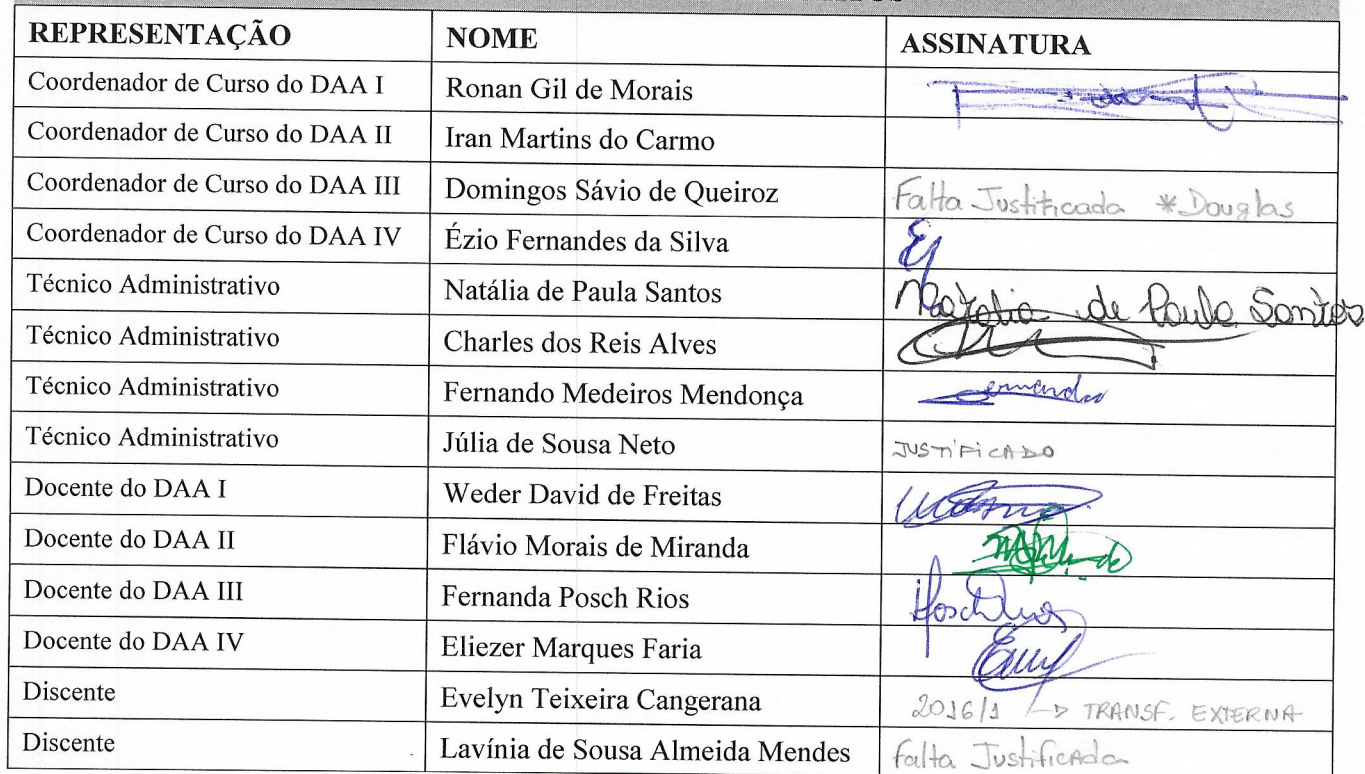 REPRESENTAÇÃO NOME ASSINATURA
Coordenador de Curso do DAA I Ronan Gil de Morais
Coordenador de Curso do DAA II Iran Martins do Carmo
Coordenador de Curso do DAA III Domingos Sávio de Queiroz Falta Justificada *Douglas
Coordenador de Curso do DAA IV Ézio Fernandes da Silva
Técnico Administrativo Natália de Paula Santos Natalia de Paula Santos
Técnico Administrativo Charles dos Reis Alves
Técnico Administrativo Fernando Medeiros Mendonça Fernando
Técnico Administrativo Júlia de Sousa Neto JUSTIFICADO
Docente do DAA I Weder David de Freitas
Docente do DAA II Flávio Morais de Miranda
Docente do DAA III Fernanda Posch Rios
Docente do DAA IV Eliezer Marques Faria
Discente Evelyn Teixeira Cangerana 2016/1 → TRANSF. EXTERNA
Discente Lavínia de Sousa Almeida Mendes Falta Justificada